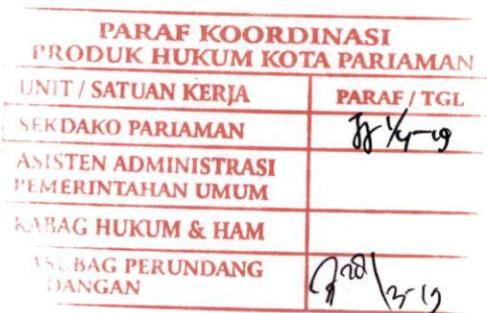 PARAF KOORDINASI
PRODUK HUKUM KOTA PARIAMAN
UNIT / SATUAN KERJA PARAF / TGL
SEKDAKO PARIAMAN 1/4-19
ASISTEN ADMINISTRASI
PEMERINTAHAN UMUM
KABAG HUKUM & HAM
KASUBAG PERUNDANG
DANGAN